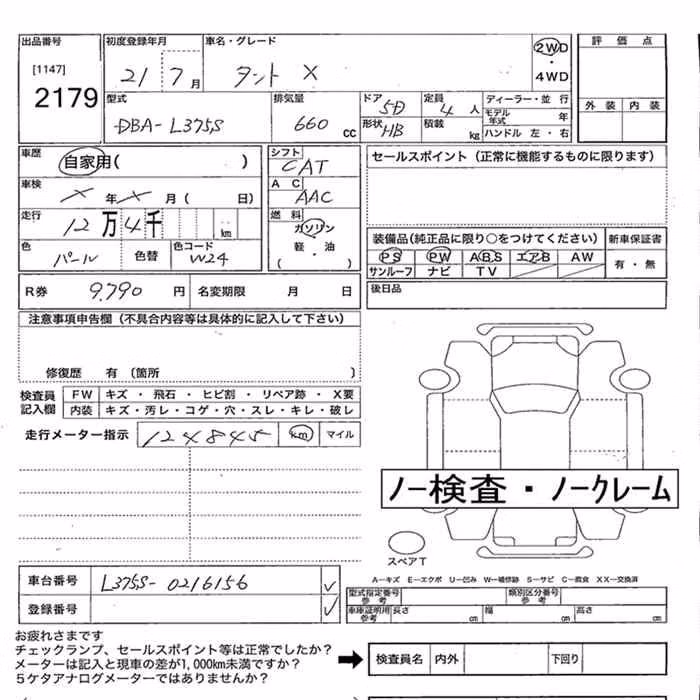 出品番号 初度登録年月 車名・グレード 2WD 評価点
[1147] 21 7月 タント X ・
2179 4WD
型式 排気量 ドア 5D 定員 4人 ディーラー・並行 外装 内装
DBA-L375S 660cc 形状 HB 積載 kg モデル年式 年
ハンドル 左・右
車歴 自家用( ) シフト CAT セールスポイント(正常に機能するものに限ります)
車検 メ年メ月( 日) AC AAC
走行 12万4千 km 燃料 ガソリン 装備品(純正品に限り○をつけてください) 新車保証書
色 パール 色替 色コード W24 軽・油 PS PW ABS エアB AW 有・無
( ) サンルーフ ナビ TV
R券 9.790円 名変期限 月 日 後日品
注意事項申告欄(不具合内容等は具体的に記入して下さい)
修復歴 有(箇所 )
検査員 FW キズ・飛石・ヒビ割・リペア跡・X要
記入欄 内装 キズ・汚レ・コゲ・穴・スレ・キレ・破レ
走行メーター指示 124845 km マイル
ノー検査・ノークレーム
スペアT
A-キズ E-エクボ U-凹み W-補修跡 S-サビ C-腐食 XX-交換済
車台番号 L375S-0216156 ✓ 型式指定番号 参考 類別区分番号 参考
登録番号 ✓ 車庫証明用 参考 長さ cm 幅 cm 高さ cm
お疲れさまです
チェックランプ、セールスポイント等は正常でしたか?
メーターは記入と現車の差が1,000km未満ですか? ➡ 検査員名 内外 下回り
5ケタアナログメーターではありませんか?